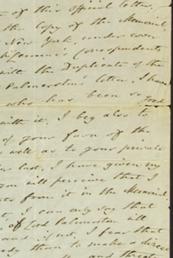 of this official letter,
the copy of the Memorial
New York, under cover
Correspondents
with the Duplicate of
Palmerston's letter, I have
who has been so good
with it, I beg also to
of your favor of the
as well as to your private
last, I have given my
you will perceive that I
from it in the Memorial
I can only say that
of Lord Palmerston will
and if not, I fear that
than to make a direct
and